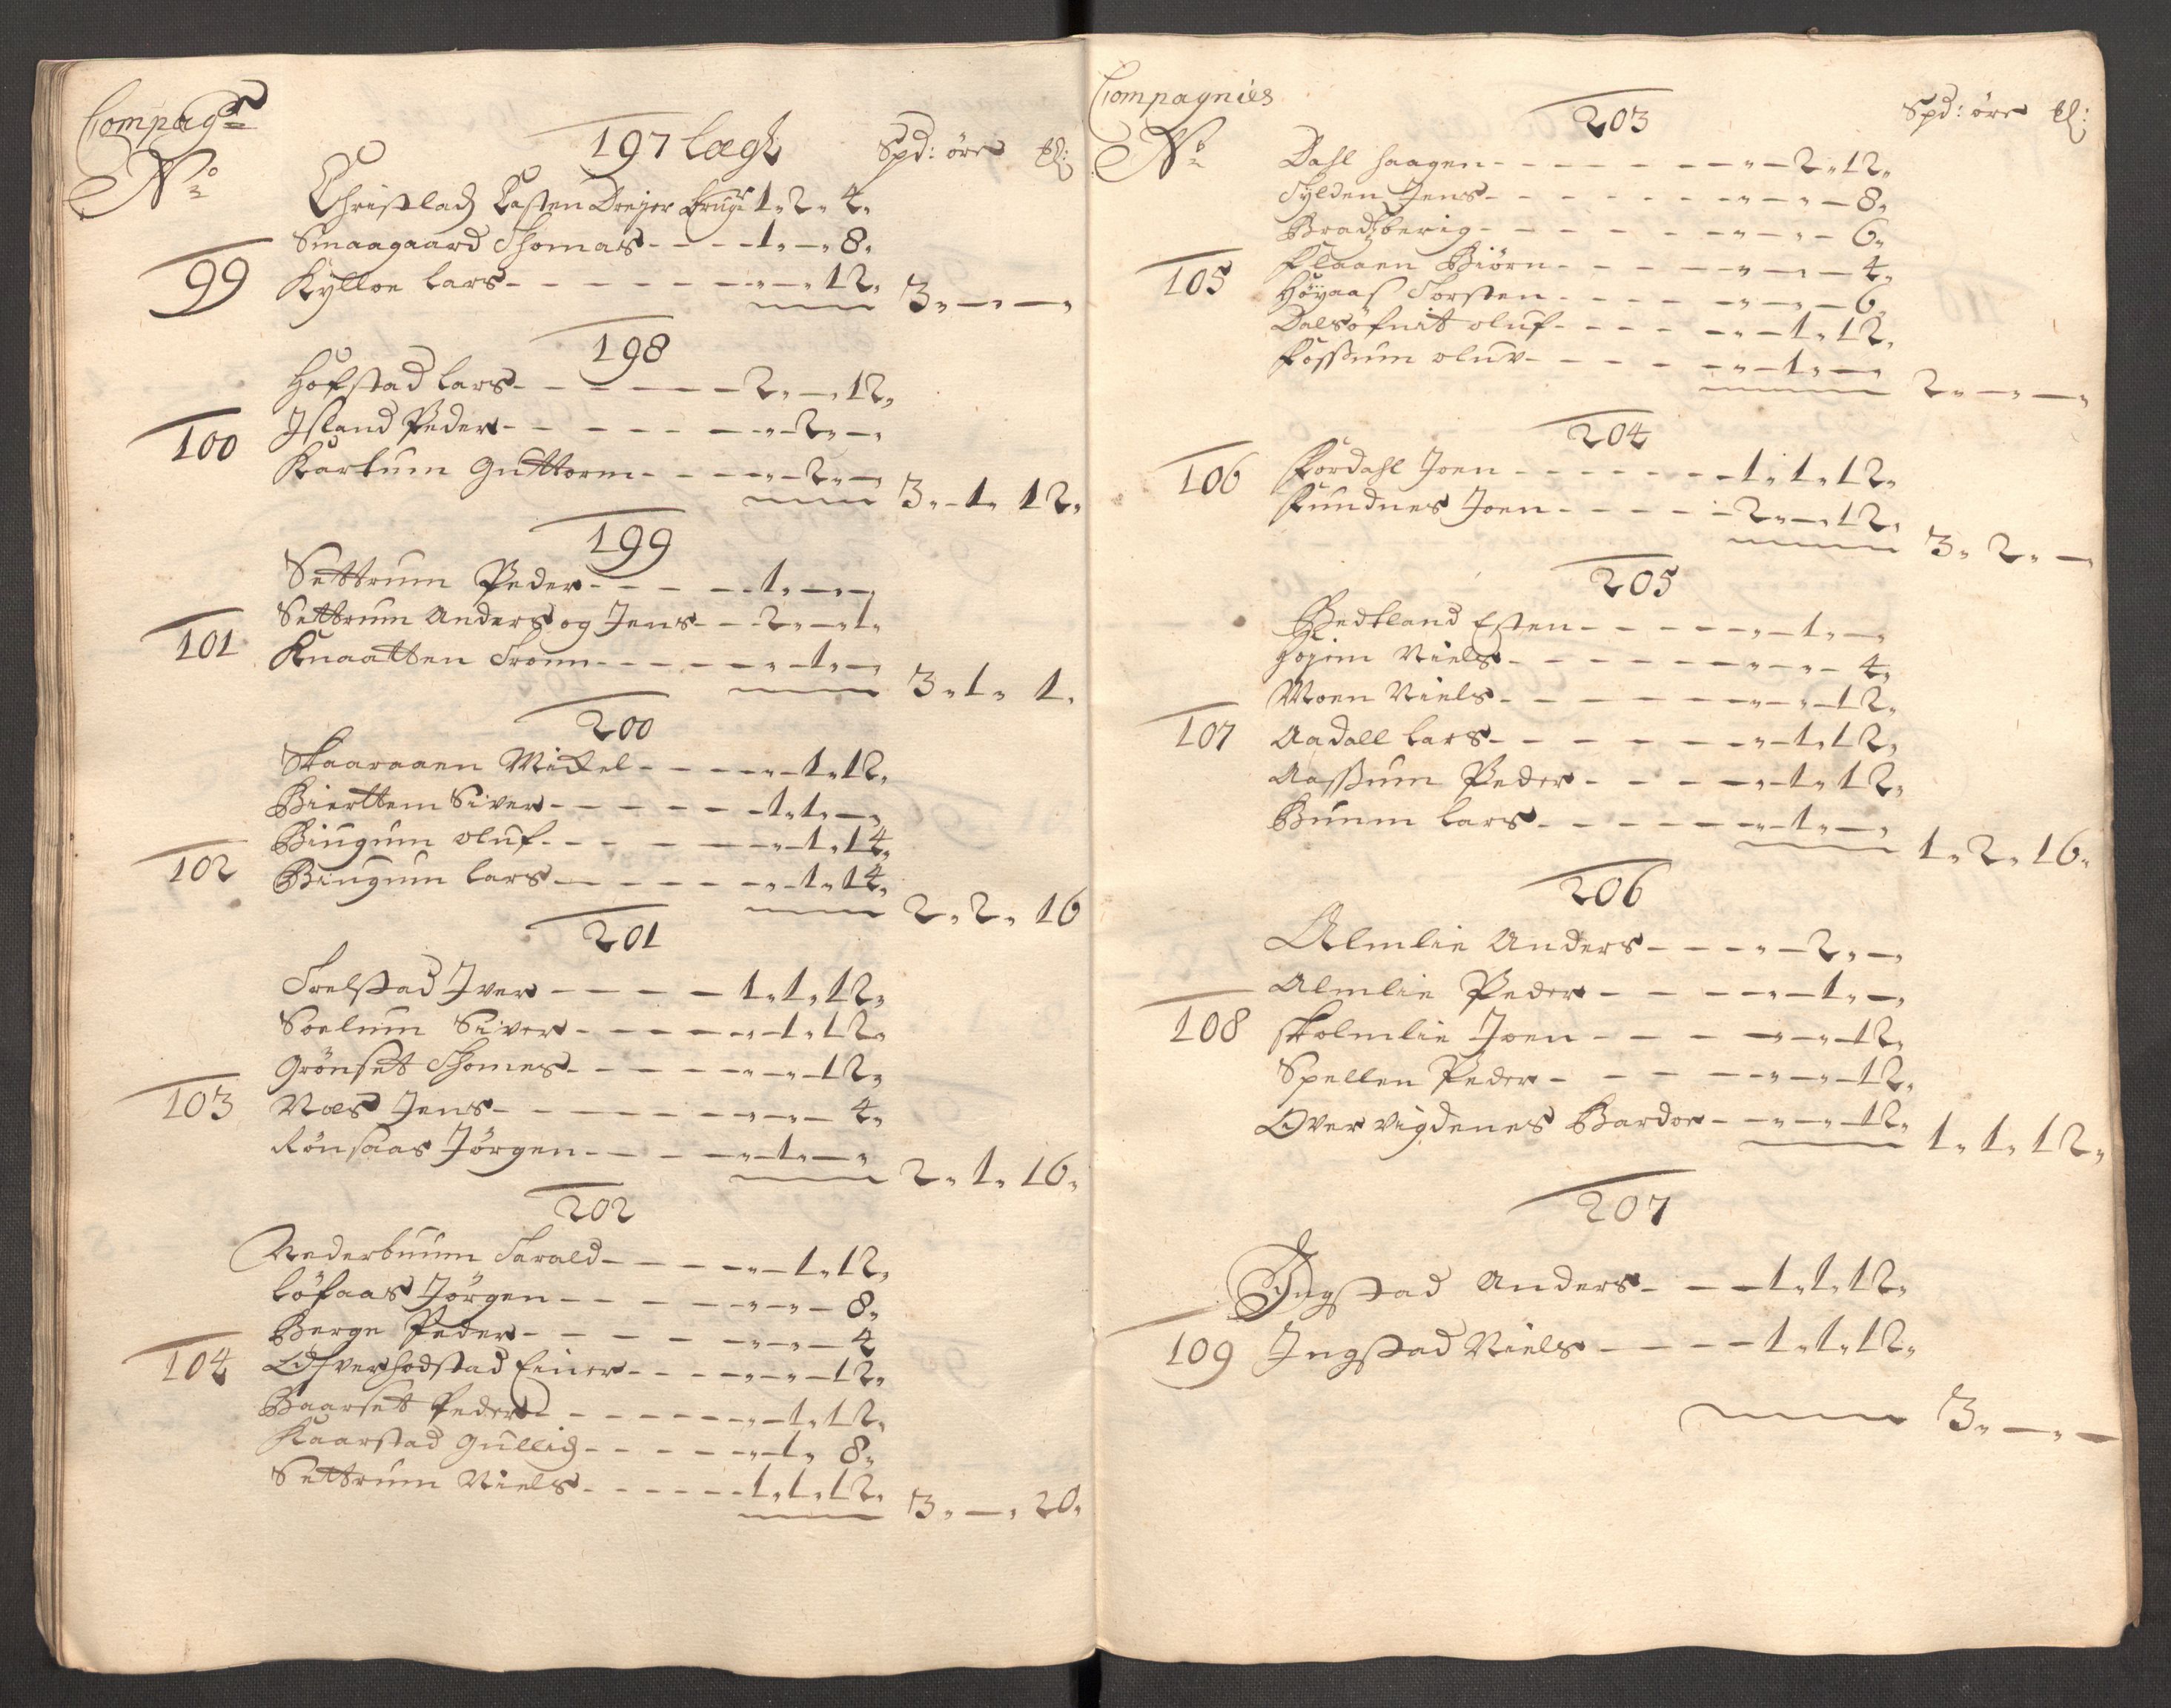 Compag:s
No
197 lægt Spd: öre ℔:
Christlad Casten Dreyer bruger 1 " 2 " 4 "
Smaagaard Thomas - - - 1 " — " 8 "
99 Kylloe Lars - - - " — " 12 " 3 " — " — "
198
Hofstad Lars - - - 2 " — " 12 "
Island Peder - - - " 2 " — "
100 Karlum Guttorm - - - " 2 " — " 3 " 1 " 12 "
199
Settrum Peder - - - 1 " — " — "
Settrum Anders og Jens - - 2 " — " 1 "
101 Knaatten Tronn - - - " 1 " — " 3 " 1 " 1 "
200
Skaaraaen Mickel - - - " 1 " 12 "
Bierttem Siver - - - 1 " 1 " — "
Biugum oluf - - - " 1 " 14 "
102 Biugum Lars - - - " 1 " 14 " 2 " 2 " 16
201
Troelstad Iver - - - 1 " 1 " 12 "
Soelum Siver - - - " 1 " 12 "
Grönset Thomes - - - " — " 12 "
103 Næs Jens - - - " — " 4 "
Rönsaas Jörgen - - - " 1 " — " 2 " 1 " 16 "
202
Nederbuum Harald - - - " 1 " 12 "
Löfaas Jörgen - - - " — " 8 "
Berge Peder - - - " — " 4
104 Ofverhodstad Einer - - - " — " 12 "
Baarset Peder - - - " 1 " 12 "
Kaarstad Gullig - - - " 1 " 8 "
Settrum Niels - - - 1 " 1 " 12 " 3 " — " 20 "
Compagnies
No
203 Spd: öre ℔:
Dahl Haagen - - - " 2 " 12 "
Tylden Jens - - - " — " 8 "
Bradtzberig - - - " — " 6 "
105 Flaaen Biörn - - - " — " 4 "
Höyaas Torsten - - - " — " 6 "
Dalsöfnit oluf - - - " 1 " 12 "
Fossum oluv - - - " 1 " — " 2 " — " — "
204
106 Fordahl Joen - - - 1 " 1 " 12 "
Fundnes Joen - - - 2 " — " 12 " 3 " 2 " —
205
Vedtland Esten - - - " 1 " — "
Hojem Niels - - - " — " 4 "
Moen Niels - - - " — " 12 "
107 Aadall Lars - - - " 1 " 12 "
Aassum Peder - - - " 1 " 12 "
Buum Lars - - - " 1 " — " 1 " 2 " 16 "
206
Almlie Anders - - - " 2 " — "
Almlie Peder - - - " 1 " — "
108 Skolmlie Joen - - - " — " 12 "
Spellen Peder - - - " — " 12 "
Over vigdenes Bardoe - " — " 12 " 1 " 1 " 12 "
207
Ingstad Anders - - - 1 " 1 " 12 "
109 Ingstad Niels - - - 1 " 1 " 12 "
3 " — " —